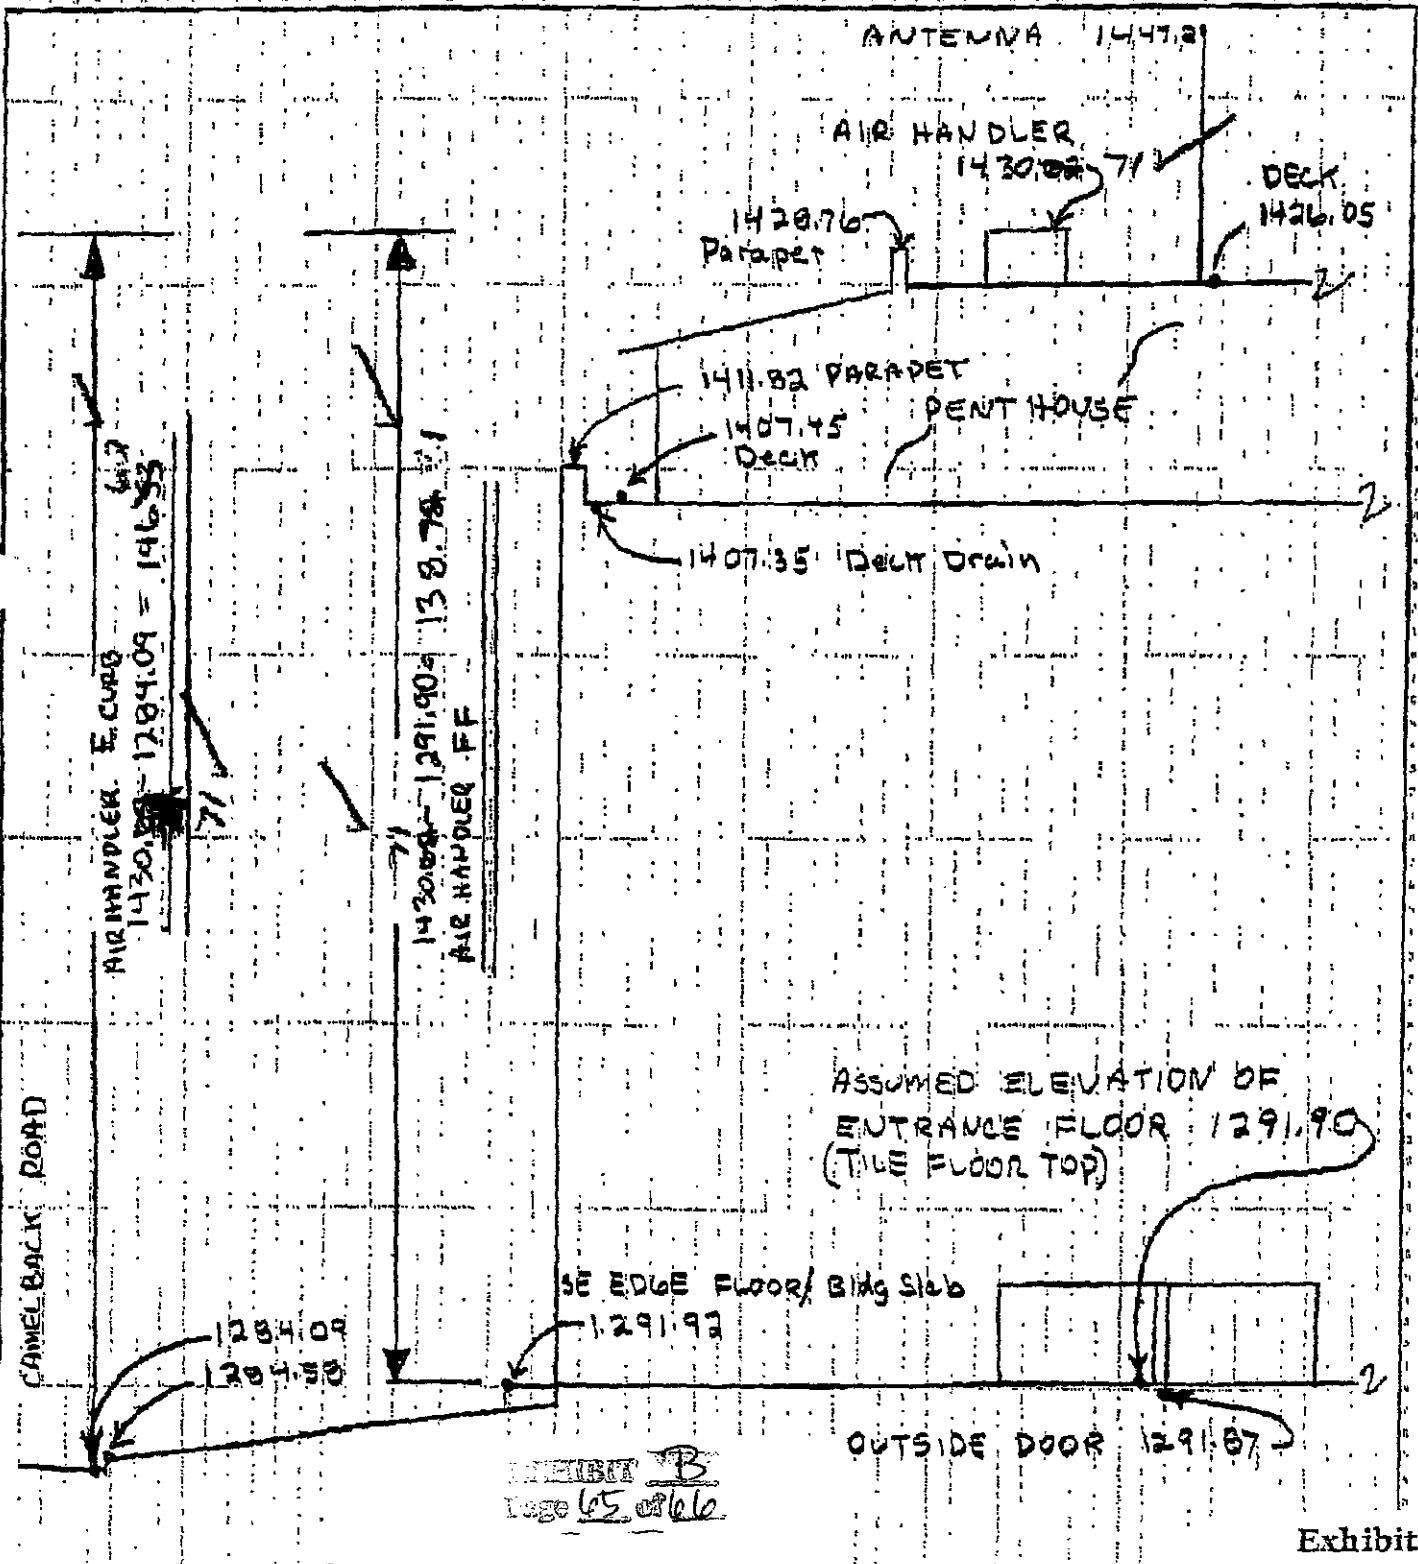 ANTENNA 1447.2
AIR HANDLER
1430. 71
DECK
1426.05
1428.76
Parapet
1411.82 PARAPET
PENTHOUSE
1407.45
Deck
1407.35 Deck Drain
AIR HANDLER E. CURB
1430. - 1284.09 = 146.
71
1430. - 1291.90 = 138.
71
AIR HANDLER FF
CAMELBACK ROAD
ASSUMED ELEVATION OF
ENTRANCE FLOOR 1291.90
(TILE FLOOR TOP)
SE EDGE FLOOR/Bldg Slab
1291.92
1284.09
1284.58
OUTSIDE DOOR 1291.87
EXHIBIT B
Page 65 of 66
Exhibit